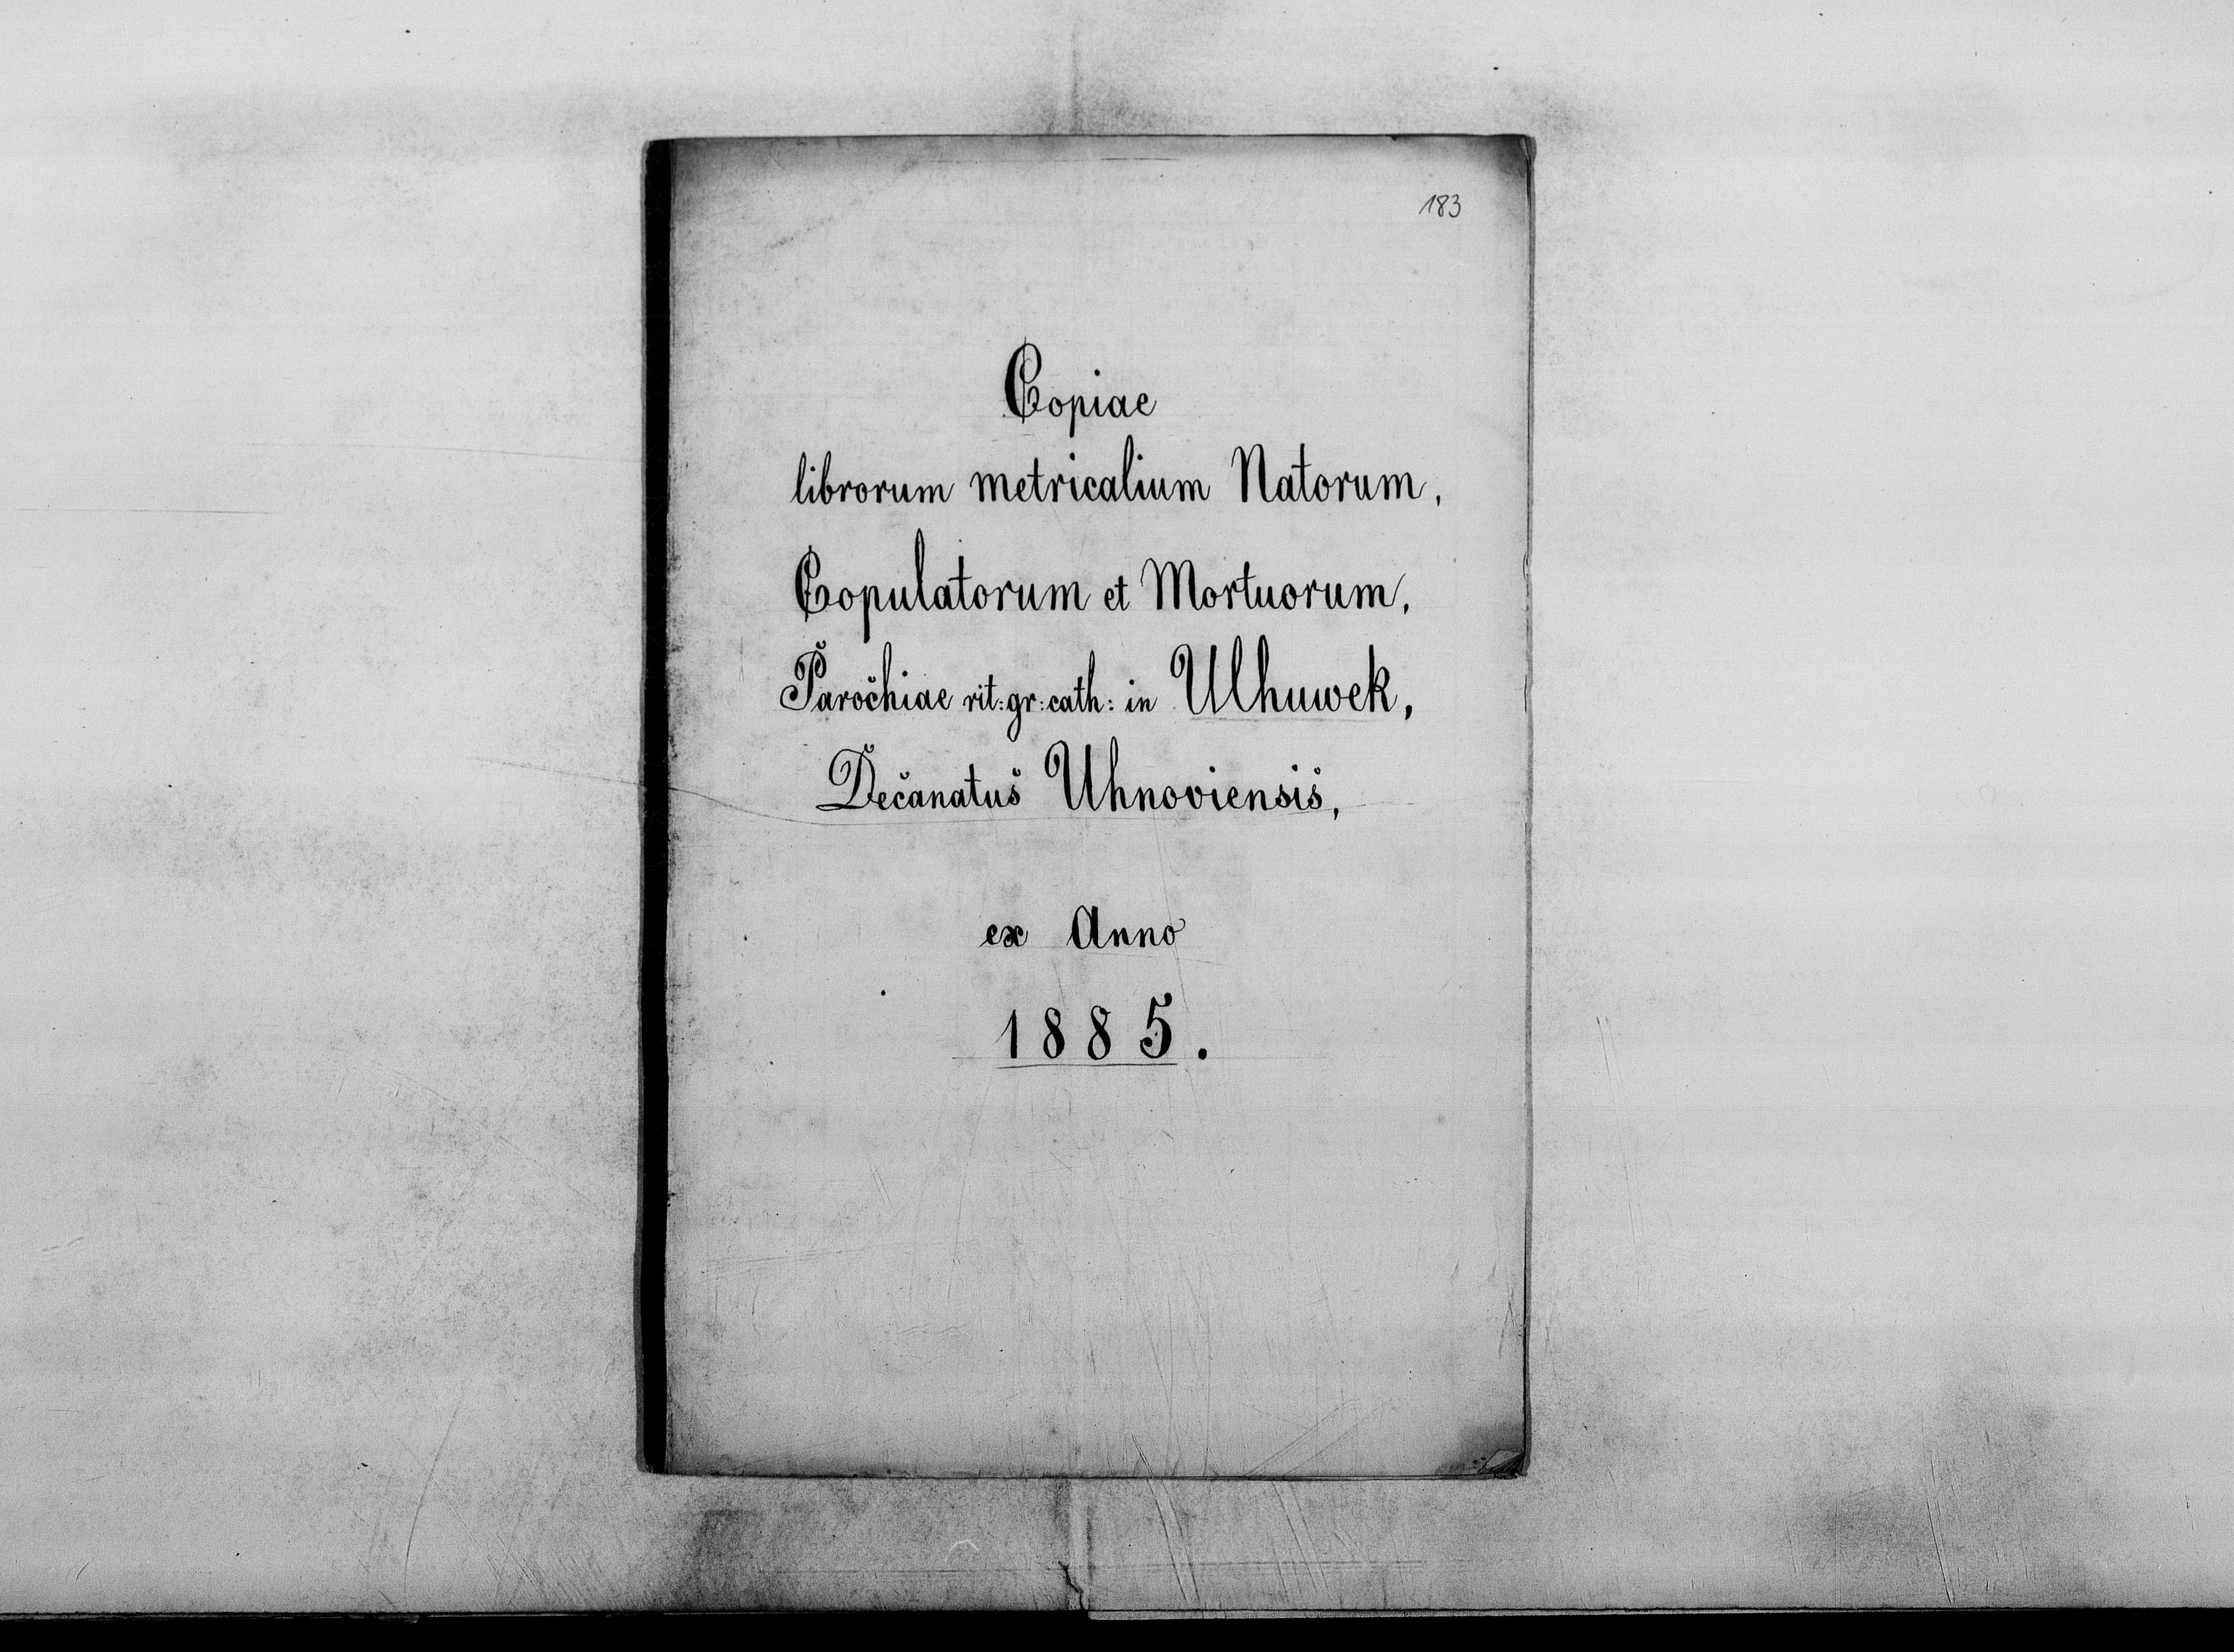 183
Copiae
librorum metricalium Natorum,
Copulatorum et Mortuorum,
Parochiae rit: gr: cath: in Ulhuwek,
Decanatus Uhnoviensis,
ex Anno
1885.